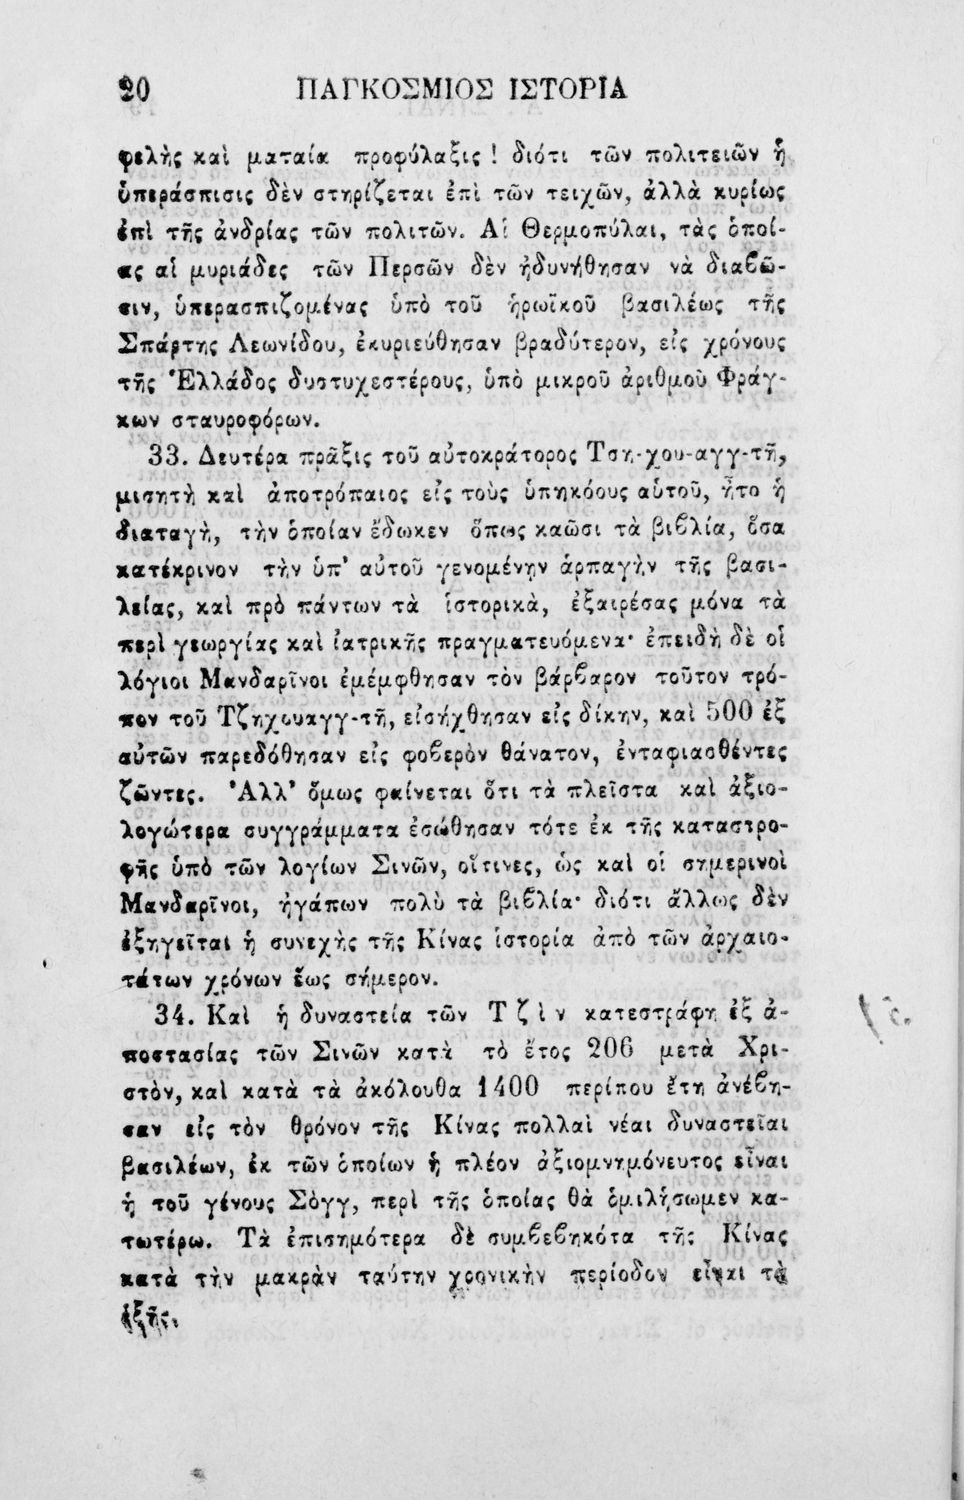 20 ΠΑΓΚΟΣΜΙΟΣ ΙΣΤΟΡΙΑ
φελὴς καὶ ματαία προφύλαξις! διότι τῶν πολιτειῶν ἡ
ὑπεράσπισις δὲν στηρίζεται ἐπὶ τῶν τειχῶν, ἀλλὰ κυρίως
ἐπὶ τῆς ἀνδρίας τῶν πολιτῶν. Αἱ Θερμοπύλαι, τὰς ὁποί-
ας αἱ μυριάδες τῶν Περσῶν δὲν ἠδυνήθησαν νὰ διαβῶ-
σιν, ὑπερασπιζομένας ὑπὸ τοῦ ἡρωϊκοῦ βασιλέως τῆς
Σπάρτης Λεωνίδου, ἐκυριεύθησαν βραδύτερον, εἰς χρόνους
τῆς Ἑλλάδος δυστυχεστέρους, ὑπὸ μικροῦ ἀριθμοῦ Φράγ-
κων σταυροφόρων.
33. Δευτέρα πρᾶξις τοῦ αὐτοκράτορος Τση-χου-αγγ-τῆ,
μισητὴ καὶ ἀποτρόπαιος εἰς τοὺς ὑπηκόους αὑτοῦ, ἦτο ἡ
διαταγὴ, τὴν ὁποίαν ἔδωκεν ὅπως καῶσι τὰ βιβλία, ὅσα
κατέκρινον τὴν ὑπ' αὐτοῦ γενομένην ἁρπαγὴν τῆς βασι-
λείας, καὶ πρὸ πάντων τὰ ἱστορικὰ, ἐξαιρέσας μόνα τὰ
περὶ γεωργίας καὶ ἰατρικῆς πραγματευόμενα· ἐπειδὴ δὲ οἱ
λόγιοι Μανδαρῖνοι ἐμέμφθησαν τὸν βάρβαρον τοῦτον τρό-
πον τοῦ Τζηχουαγγ-τῆ, εἰσήχθησαν εἰς δίκην, καὶ 500 ἐξ
αὐτῶν παρεδόθησαν εἰς φοβερὸν θάνατον, ἐνταφιασθέντες
ζῶντες. Ἀλλ' ὅμως φαίνεται ὅτι τὰ πλεῖστα καὶ ἀξιο-
λογώτερα συγγράμματα ἐσώθησαν τότε ἐκ τῆς καταστρο-
φῆς ὑπὸ τῶν λογίων Σινῶν, οἵτινες, ὡς καὶ οἱ σημερινοὶ
Μανδαρῖνοι, ἠγάπων πολὺ τὰ βιβλία· διότι ἄλλως δὲν
ἐξηγεῖται ἡ συνεχὴς τῆς Κίνας ἱστορία ἀπὸ τῶν ἀρχαιο-
τάτων χρόνων ἕως σήμερον.
34. Καὶ ἡ δυναστεία τῶν Τζὶν κατεστράφη ἐξ ἀ-
ποστασίας τῶν Σινῶν κατὰ τὸ ἔτος 206 μετὰ Χρι-
στὸν, καὶ κατὰ τὰ ἀκόλουθα 1400 περίπου ἔτη ἀνέβη-
σαν εἰς τὸν θρόνον τῆς Κίνας πολλαὶ νέαι δυναστεῖαι
βασιλέων, ἐκ τῶν ὁποίων ἡ πλέον ἀξιομνημόνευτος εἶναι
ἡ τοῦ γένους Σὸγγ, περὶ τῆς ὁποίας θὰ ὁμιλήσωμεν κα-
τωτέρω. Τὰ ἐπισημότερα δὲ συμβεβηκότα τῆς Κίνας
κατὰ τὴν μακρὰν ταύτην χρονικὴν περίοδον εἶναι τὰ
ἑξῆς.